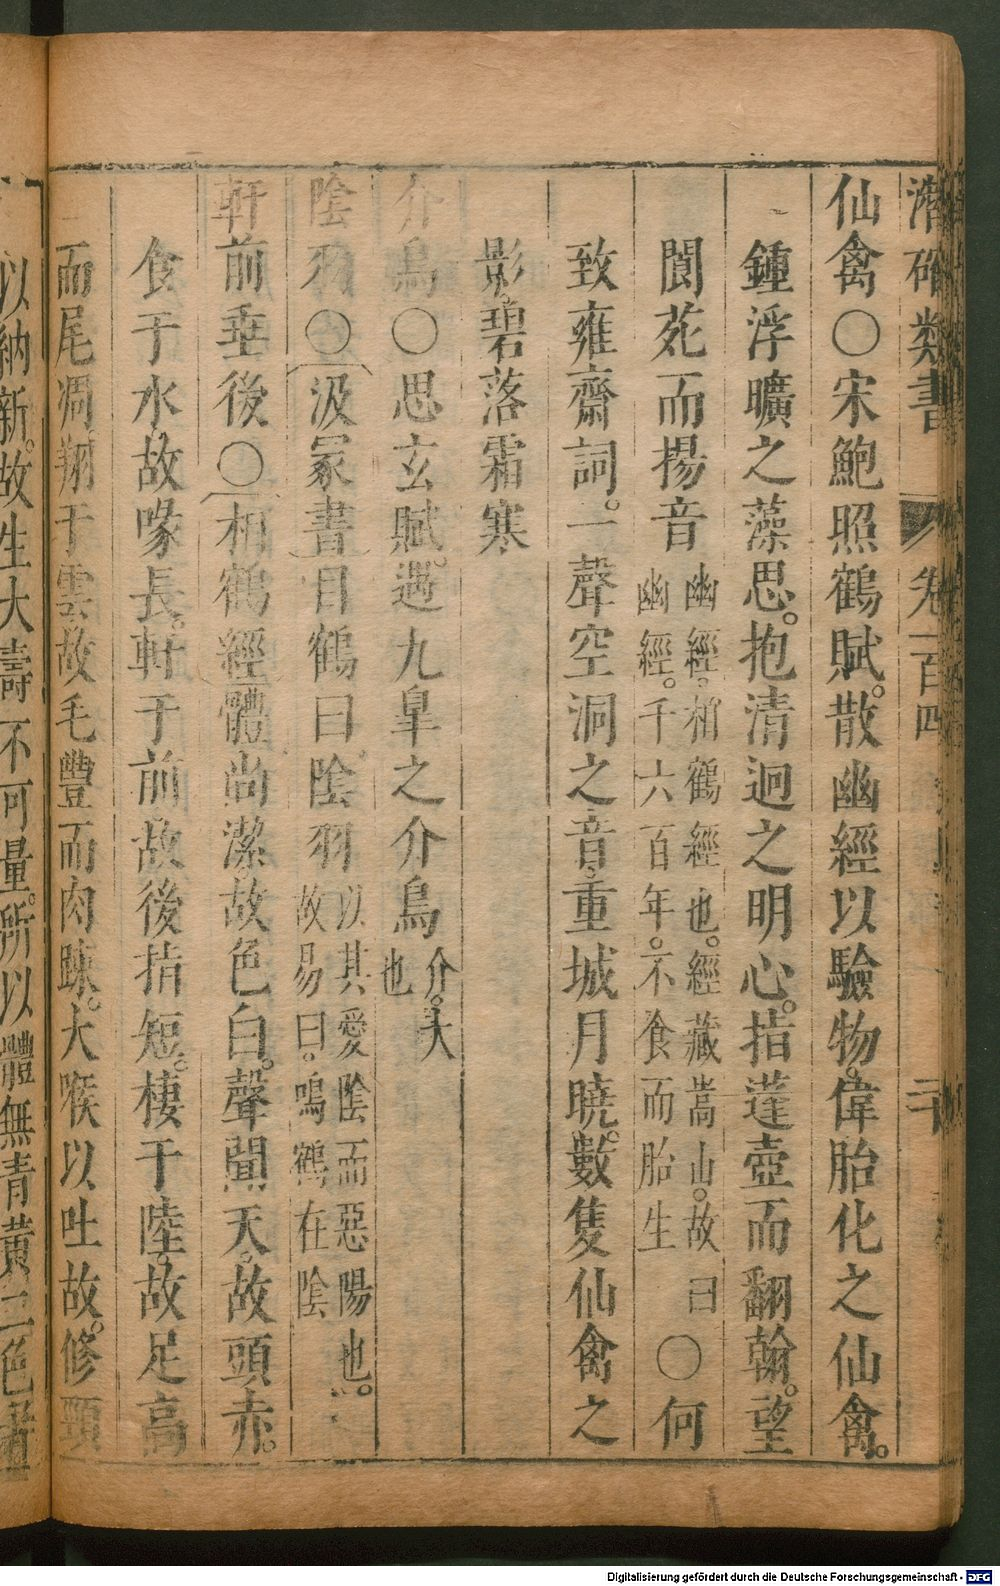 潛確類書 卷一百四 二十
仙禽○宋鮑照鶴賦。散幽經以驗物。偉胎化之仙禽。
鍾浮曠之藻思。抱清迥之明心。指蓬壺而翻翰。望
閬苑而揚音幽經。相鶴經也。經藏嵩山。故曰幽經。千六百年。不食而胎生○何
致雍齋詞。一聲空洞之音。重城月曉。數隻仙禽之
影。碧落霜寒
介鳥○思玄賦。遇九皐之介鳥介。大也
陰羽○汲冢書目鶴曰陰羽以其愛陰而惡陽也。故易曰。鳴鶴在陰
軒前垂後○相鶴經體尚潔。故色白。聲聞天。故頭赤。
食于水。故喙長。軒于前。故後指短。棲于陸。故足高
而尾凋。翔于雲。故毛豐而肉疎。大喉以吐故。修頸
以納新。故生大壽不可量。所以體無青黃二色者
Digitalisierung gefördert durch die Deutsche Forschungsgemeinschaft - DFG